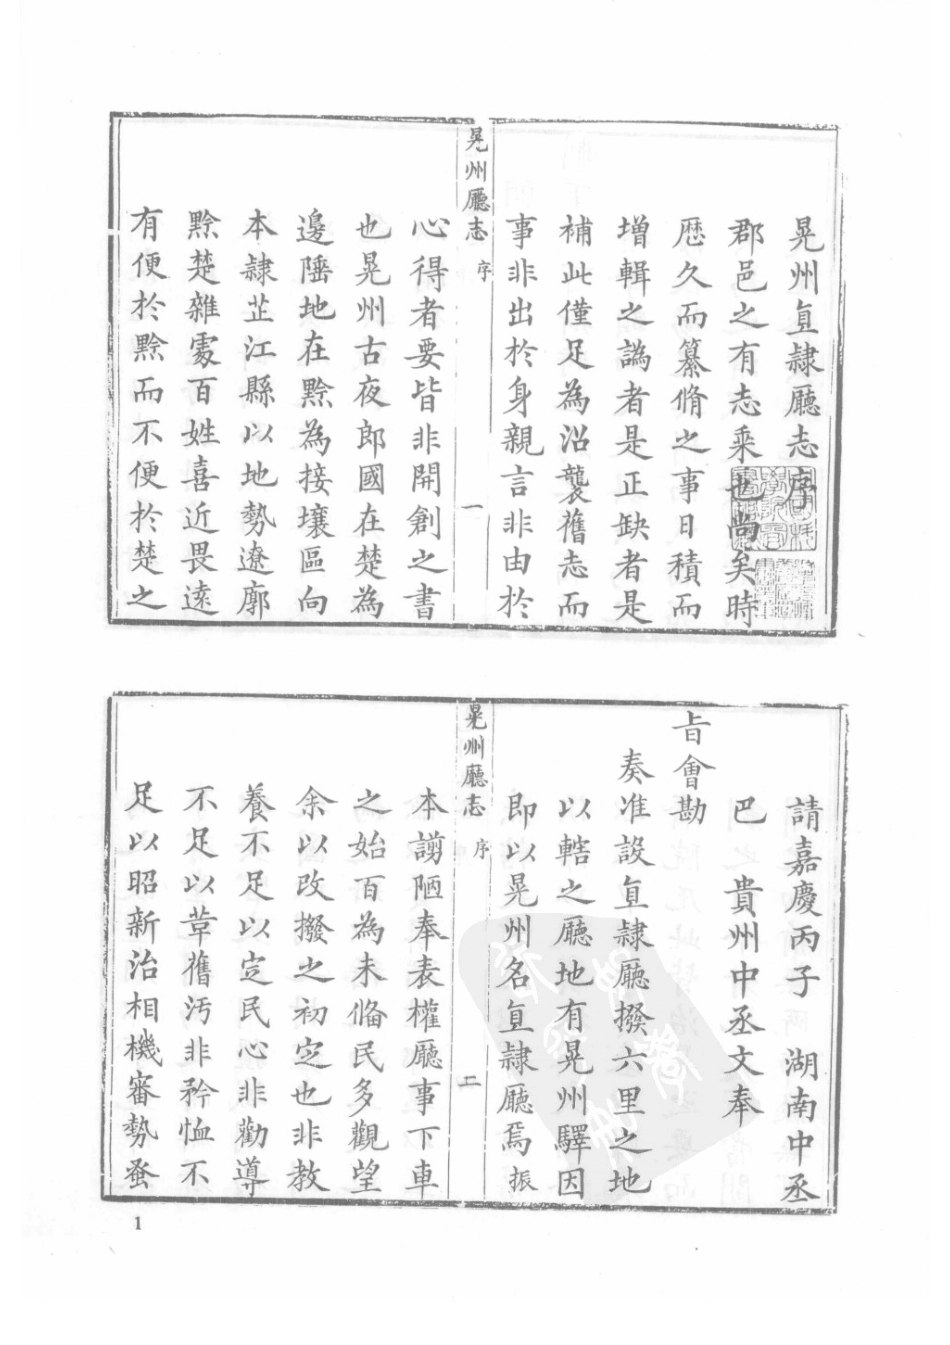 晃州直隸廳志序
郡邑之有志乘也尚矣時
歷久而纂脩之事日積而
增輯之譌者是正缺者是
補此僅足為沿襲舊志而
事非出於身親言非由於
晃州廳志 序 一
心得者要皆非開創之書
也晃州古夜郎國在楚為
邊陲地在黔為接壤區向
本隸芷江縣以地勢遼廓
黔楚雜處百姓喜近畏遠
有便於黔而不便於楚之
請嘉慶丙子 湖南中丞
巴 貴州中丞文奉
旨會勘
奏准設直隸廳撥六里之地
以轄之廳地有晃州驛因
即以晃州名直隸廳焉振
晃州廳志 序 二
本謭陋奉表權廳事下車
之始百為未備民多觀望
余以改撥之初定也非教
養不足以定民心非勸導
不足以革舊污非矜恤不
足以昭新治相機審勢蚤
1